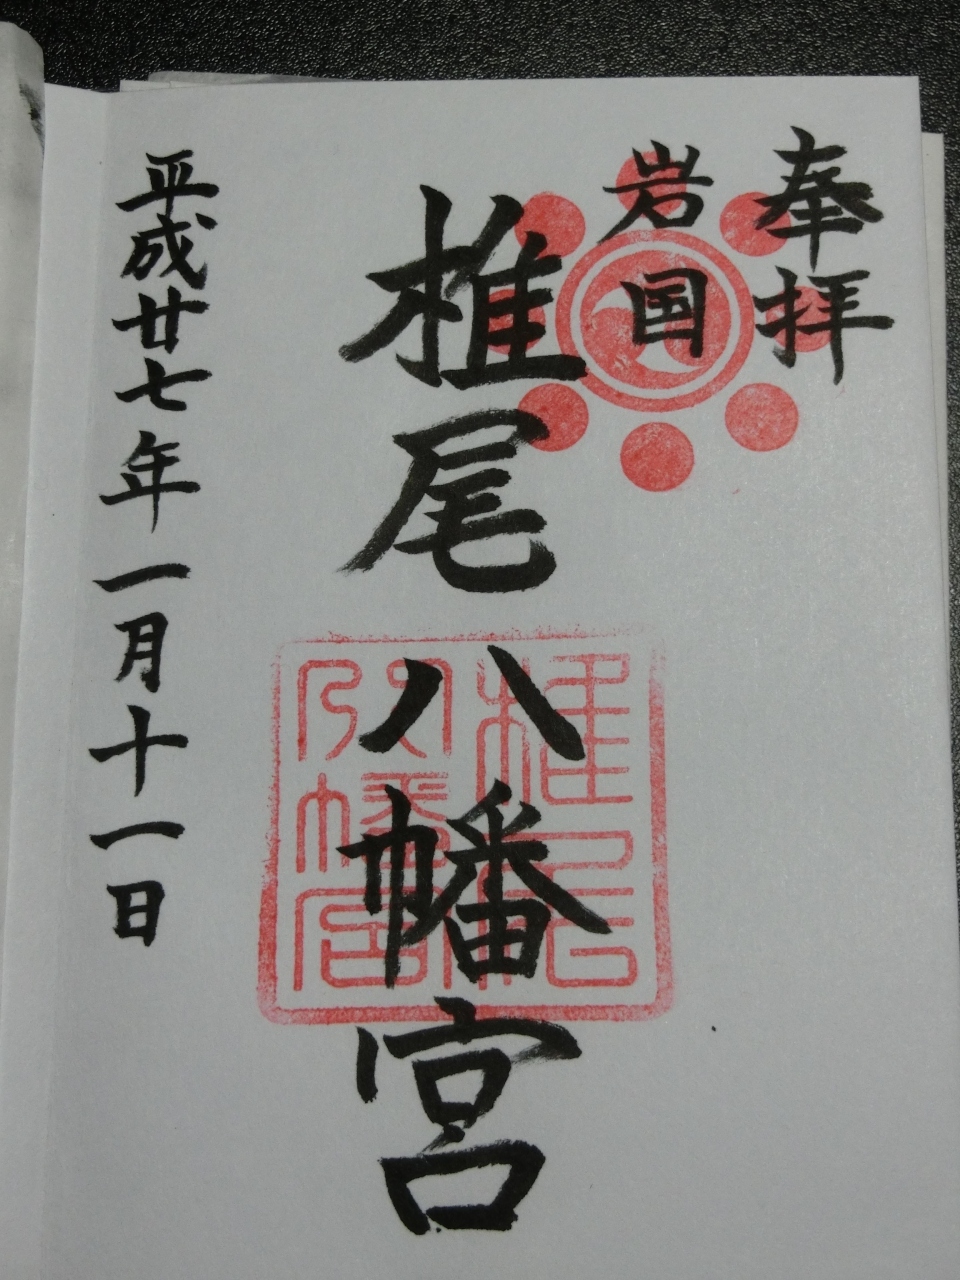 奉拝
岩国
椎尾八幡宮
椎尾八幡宮
平成廿七年一月十一日